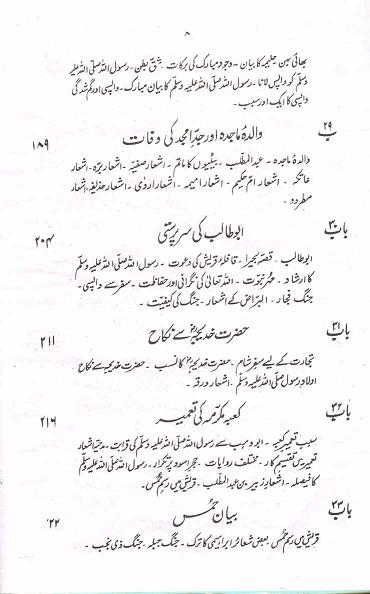 ۸
بھائی بہن حلیمہ کا بیان ۔ وجود مبارک کی برکات ۔ شق بطن ۔ رسول اللہ صلی اللہ علیہ
وسلم کو واپس لانا ۔ رسول اللہ صلی اللہ علیہ وسلم کا بیان مبارک ۔ واپسی اور گم شدگی
واپسی کا ایک اور سبب ۔
باب ۲۹
والدہ ماجدہ اور جد امجد کی وفات
۱۸۹
والدہ ماجدہ ۔ عبد المطلب ۔ بیٹیوں کا ماتم ۔ اشعار صفیہ ۔ اشعار برہ ۔ اشعار
عاتکہ ۔ اشعار ام حکیم ۔ اشعار امیمہ ۔ اشعار اروی ۔ اشعار حذیفہ ۔ اشعار
مطرود ۔
باب ۳۰
ابو طالب کی سرپرستی
۲۰۴
ابو طالب ۔ قصۂ بحیرا ۔ قافلۂ قریش کی دعوت ۔ رسول اللہ صلی اللہ علیہ وسلم
کا ارشاد ۔ مہر نبوت ۔ اللہ تعالیٰ کی نگرانی اور حفاظت ۔ سفر سے واپسی ۔
جنگ فجار ۔ البراض کے اشعار ۔ جنگ کی کیفیت ۔
باب ۳۱
حضرت خدیجہؓ سے نکاح
۲۱۱
تجارت کے لیے سفر شام ۔ حضرت خدیجہؓ کا نسب ۔ حضرت خدیجہ سے نکاح
اولاد رسول صلی اللہ علیہ وسلم ۔ اشعار ورقہ ۔
باب ۳۲
کعبہ مکرمہ کی تعمیر
۲۱۶
سبب تعمیر کعبہ ۔ ابو وہب سے رسول اللہ صلی اللہ علیہ وسلم کی قرابت ۔ مدحیہ اشعار
تعمیر میں تقسیم کار ۔ مختلف روایات ۔ حجر اسود پر تکرار ۔ رسول اللہ صلی اللہ علیہ وسلم
کا فیصلہ ۔ اشعار زبیر بن عبد المطلب ۔ قریش میں رسم حمس ۔
باب ۳۳
بیان حمس
۲۲
قریش میں رسم حمس بعض شعائر ابراہیمی کا ترک ۔ جنگ جبلہ ۔ جنگ ذی نجب ۔